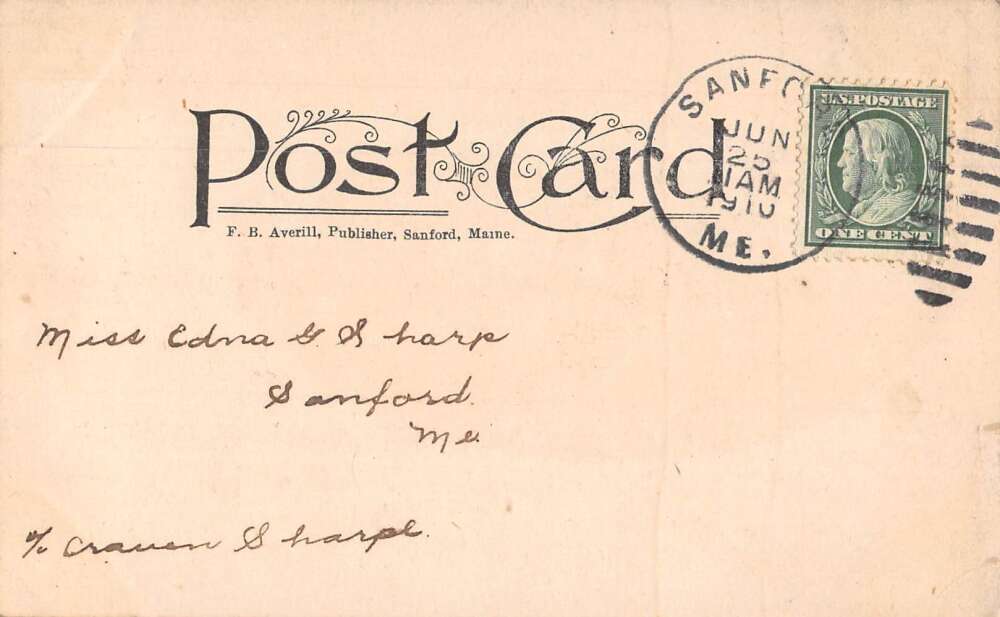 Post Card
F. B. Averill, Publisher, Sanford, Maine.
SANFORD
JUN
25
1 AM
1910
ME.
U.S. POSTAGE
ONE CENT
Miss Edna G Sharp
Sanford.
Me.
c/o Craven Sharpe.